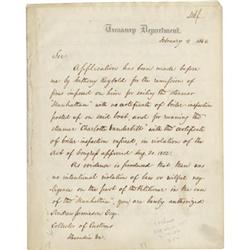 Treasury Department.
February 9 186
Sir:
Application has been made before
me by Anthony Reybold for the remission of
fines imposed on him for using the steamer
"Manhattan" with no certificate of boiler inspection
posted up on said boat, and for running the
steamer "Charlotte Vanderbilt" with the certificate
of boiler inspection expired, in violation of the
Act of Congress approved Aug 30. 1852.
As evidence is produced that there was
no intentional violation of law or wilful neg-
ligence on the part of the Petitioner in the case
of the "Manhattan", you are hereby authorized
Esqr.
Collector of Customs